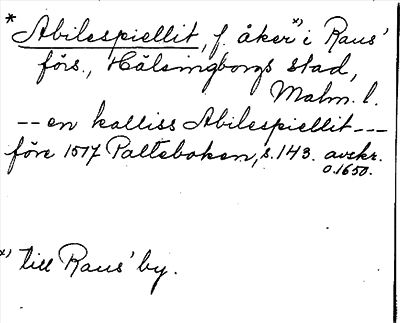 * Abilespiellit, f. åker *) i Raus'
förs., Hälsingborgs stad,
Malm. l.
-- en kalliss Abilespiellit ---
före 1517 Palteboken, s. 143. avskr.
o. 1650.
*) till Raus' by.